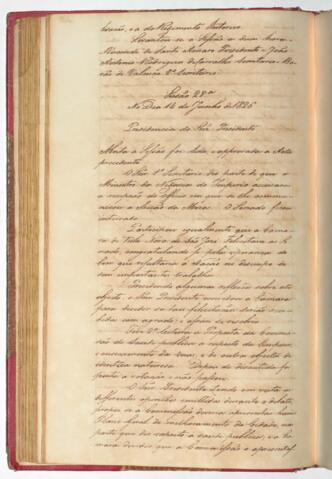 bração, e do Regimento Interno.
Levantou-se a Sessão a huma hora.
Visconde de Santo Amaro Presidente - João
Antonio Rodrigues de Carvalho Secretario - Ba-
rão de Valença 2º Secretario.
Sessão 28ª
No Dia 14 de Junho de 1826
Presidencia do Snr. Presidente
Aberta a Sessão foi lida, e approvada a Acta
precedente.
O Snr. 1º Secretario deo parte de que o
Ministro dos Negocios do Imperio accusava
a recepção do Officio em que se lhe commu-
nicou a eleição da Meza. O Senado ficou
inteirado.
Participou igualmente que a Cama-
ra da Villa Nova de São José felicitava ao Se-
nado, congratulando-se pela esperança do
bem que resultaria á Nação no desempenho de
seus importantes trabalhos.
Precedendo algumas reflexões sobre este
objecto, o Snr. Presidente convidou a Camara
para decidir se taes felicitações serião rece-
bidas com agrado: e assim se resolveo.
Teve 2ª leitura a Proposta da Commis-
são de Saude publica a respeito da limpeza,
e encanamento das ruas, e de outros objectos de
identica natureza. Depois de discutida foi
posta a votação e não passou.
O Snr. Presidente tendo em vista as
differentes opiniões emittidas durante o debate,
propoz se a Commissão deveria apresentar hum
Plano Geral de melhoramento da Cidade, na
parte que diz respeito á saude publica, e a Ca-
mara decidio que a Commissão o apresentasse